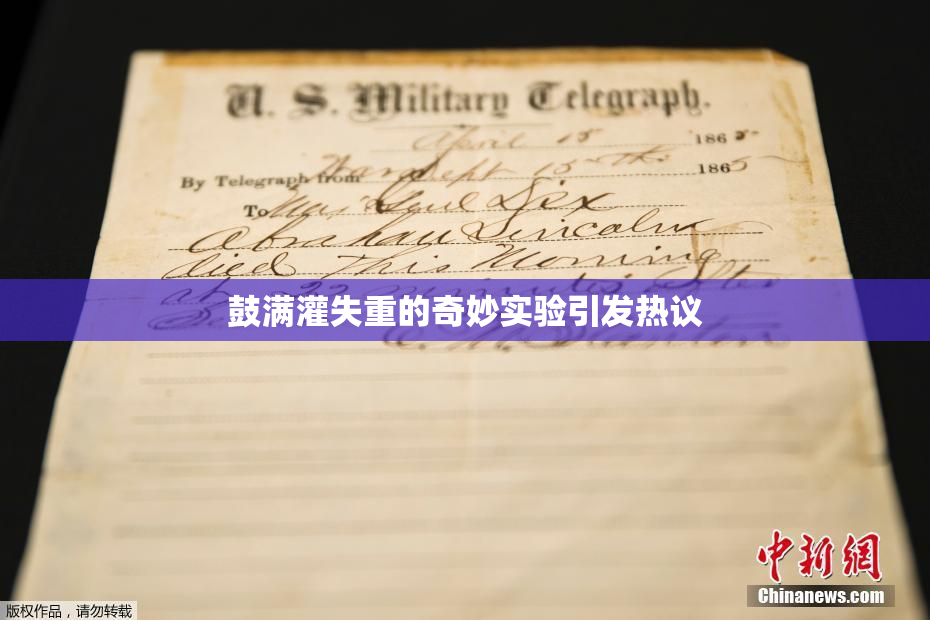 U. S. Military Telegraph.
April 15 1865
By Telegraph from War Dept 15th 1865
To Maj Genl Dix
Abraham Lincoln
died This Morning
at 22 minutes after
鼓满灌失重的奇妙实验引发热议
E. M. Stanton
中新网
Chinanews.com
版权作品，请勿转载